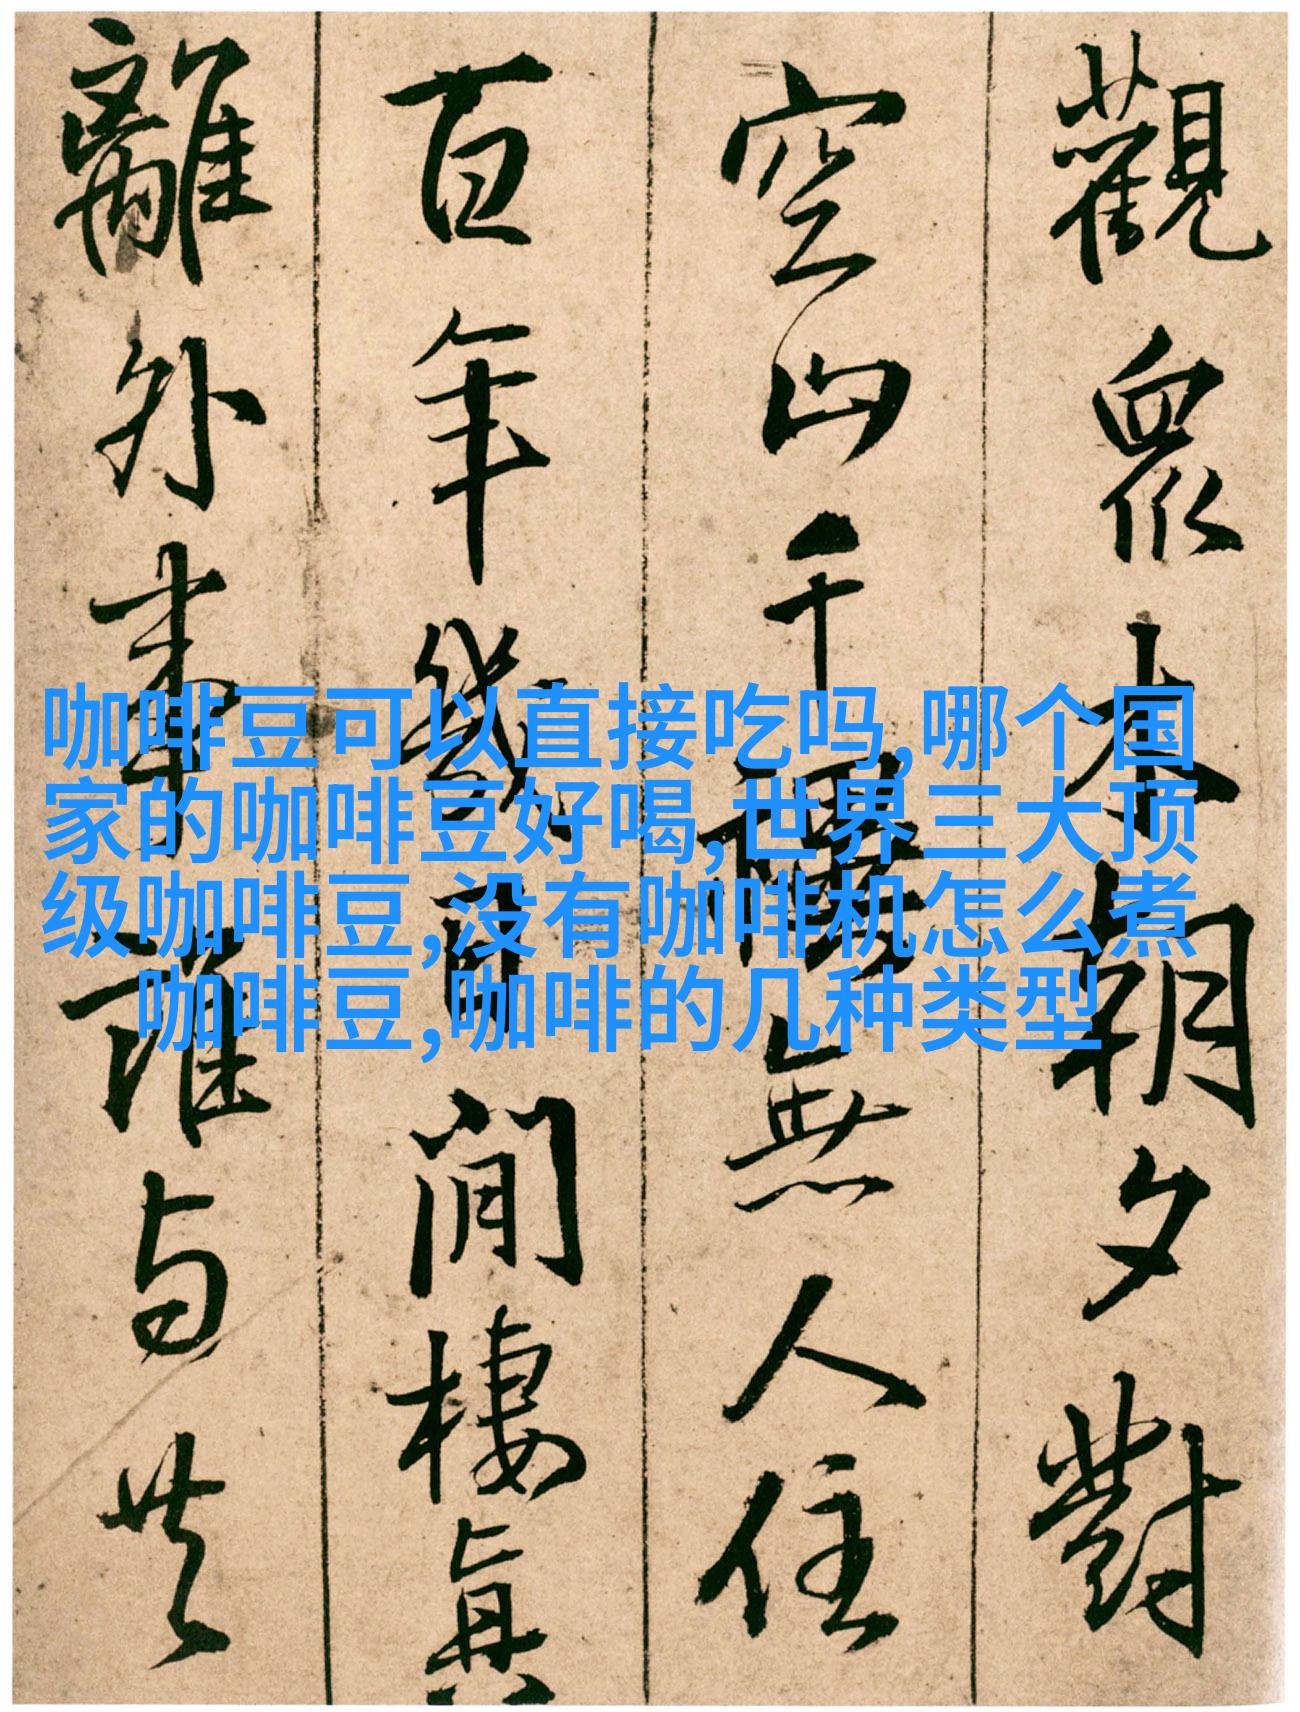 咖啡豆可以直接吃吗,哪个国
家的咖啡豆好喝,世界三大顶
级咖啡豆,没有咖啡机怎么煮
咖啡豆,咖啡的几种类型
觀衆木朝夕對
空山千無人住
百年幾閒棲真
離外事誰与共